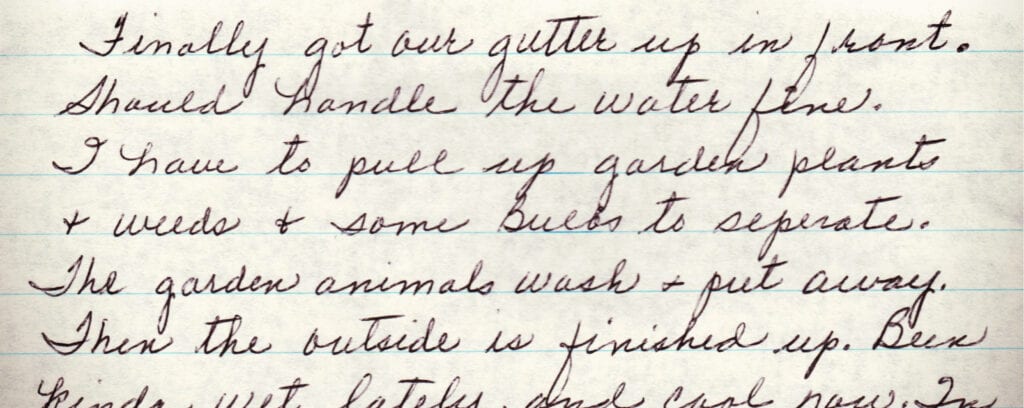 Finally got our gutter up in front.
Should handle the water fine.
I have to pull up garden plants
+ weeds & some Bulbs to seperate.
The garden animals wash + put away.
Then the outside is finished up. Been
kinda wet lately and cool now. I'm